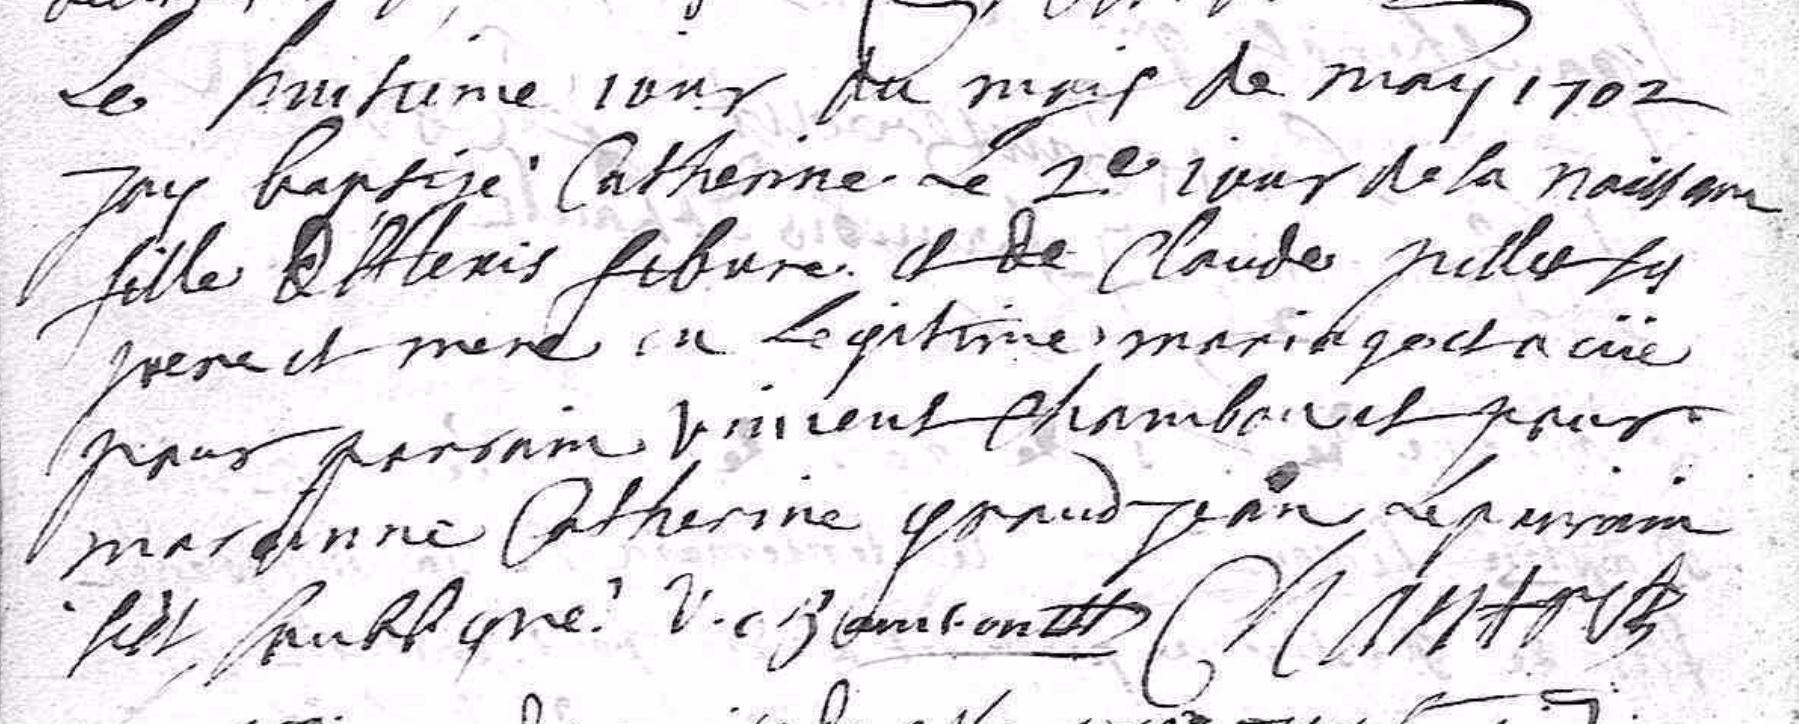 Le huistieme iour du mois de may 1702
jay baptizé Catherine le 2e iour de la naissance
fille d'Alexis febvre et de Claude ses
pere et mere en Legitime mariage et a eüe
pour parrain Vincent Chambon et pour
maranne Catherine grand jean Le parrain
s'est soubsigné V. Chambon